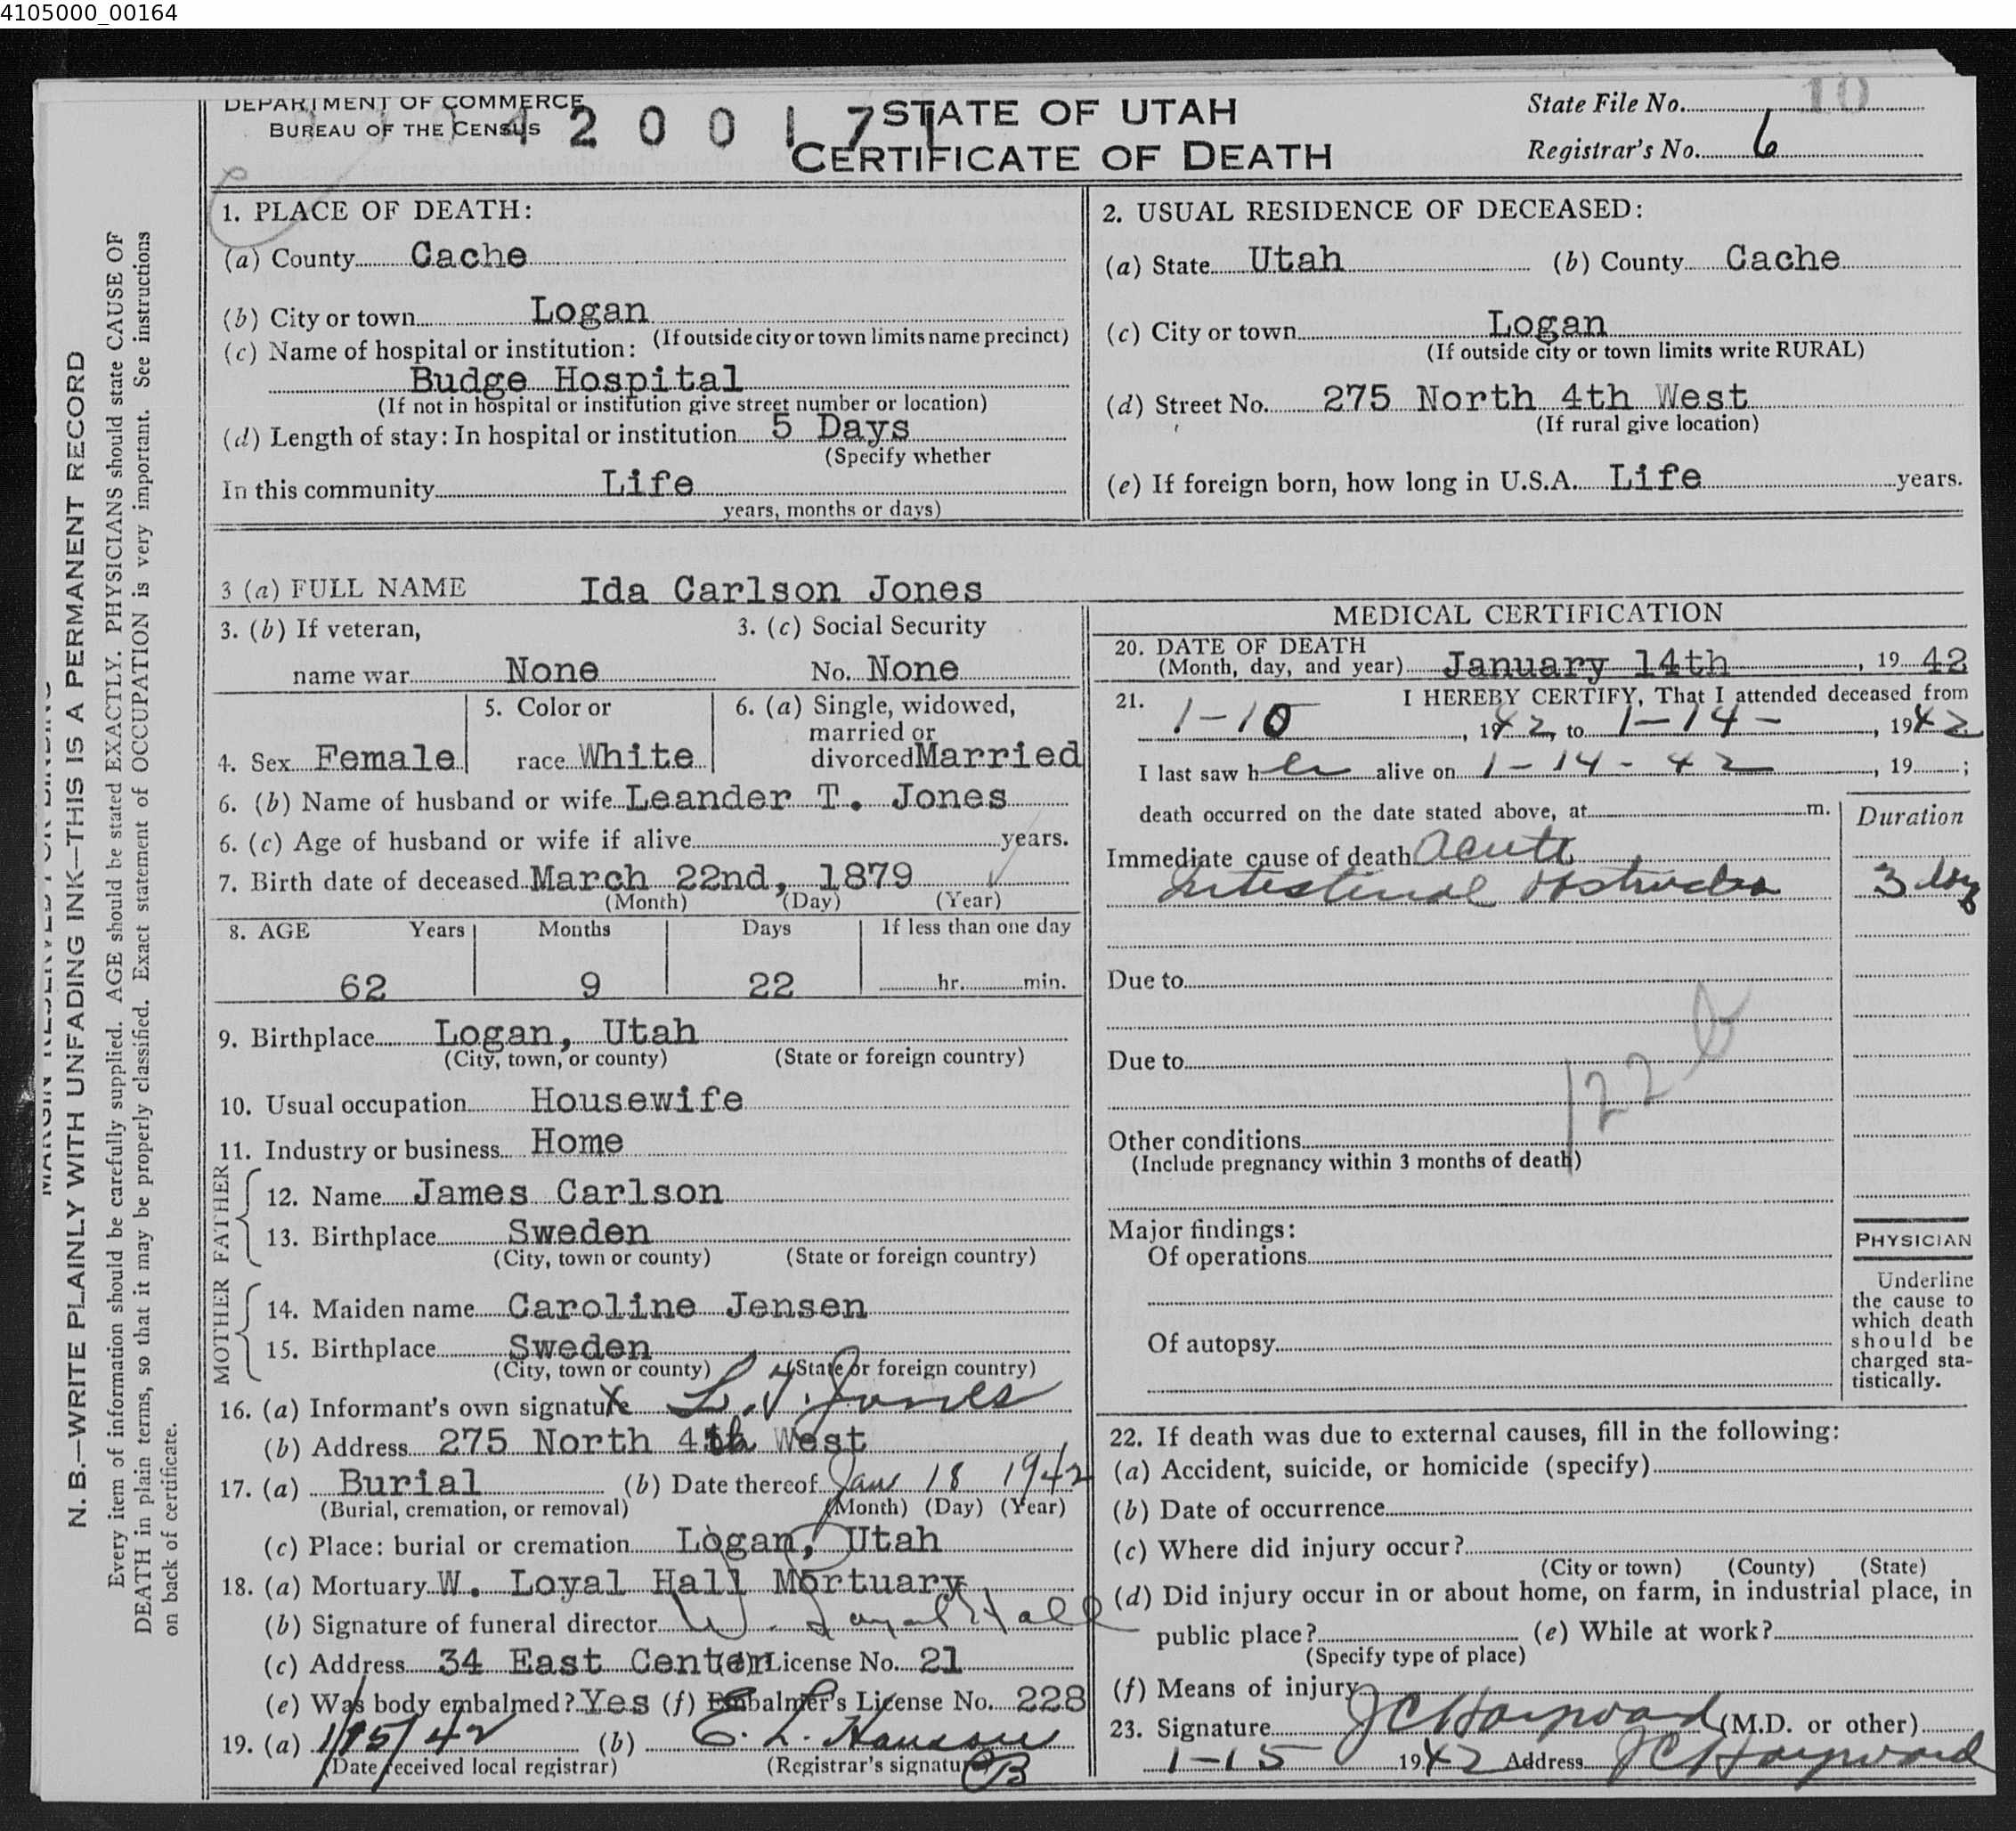 4105000_00164
DEPARTMENT OF COMMERCE
BUREAU OF THE CENSUS
4 2 0 0 1 7 1
STATE OF UTAH
CERTIFICATE OF DEATH
State File No. 10
Registrar's No. 6
N. B.—WRITE PLAINLY WITH UNFADING INK—THIS IS A PERMANENT RECORD
Every item of information should be carefully supplied. AGE should be stated EXACTLY. PHYSICIANS should state CAUSE OF
DEATH in plain terms, so that it may be properly classified. Exact statement of OCCUPATION is very important. See instructions
on back of certificate.
1. PLACE OF DEATH:
(a) County Cache
(b) City or town Logan
(If outside city or town limits name precinct)
(c) Name of hospital or institution:
Budge Hospital
(If not in hospital or institution give street number or location)
(d) Length of stay: In hospital or institution 5 Days
(Specify whether
In this community Life
years, months or days)
2. USUAL RESIDENCE OF DECEASED:
(a) State Utah (b) County Cache
(c) City or town Logan
(If outside city or town limits write RURAL)
(d) Street No. 275 North 4th West
(If rural give location)
(e) If foreign born, how long in U.S.A. Life years.
3 (a) FULL NAME Ida Carlson Jones
3. (b) If veteran, 3. (c) Social Security
name war None No. None
4. Sex Female 5. Color or race White 6. (a) Single, widowed, married or divorced Married
6. (b) Name of husband or wife Leander T. Jones
6. (c) Age of husband or wife if alive years.
7. Birth date of deceased March 22nd, 1879
(Month) (Day) (Year)
8. AGE Years Months Days If less than one day
62 9 22 hr. min.
9. Birthplace Logan, Utah
(City, town, or county) (State or foreign country)
10. Usual occupation Housewife
11. Industry or business Home
FATHER
12. Name James Carlson
13. Birthplace Sweden
(City, town or county) (State or foreign country)
MOTHER
14. Maiden name Caroline Jensen
15. Birthplace Sweden
(City, town or county) (State or foreign country)
16. (a) Informant's own signature X L. T. Jones
(b) Address 275 North 4th West
17. (a) Burial (b) Date thereof Jan 18 1942
(Burial, cremation, or removal) (Month) (Day) (Year)
(c) Place: burial or cremation Logan, Utah
18. (a) Mortuary W. Loyal Hall Mortuary
(b) Signature of funeral director W. Loyal Hall
(c) Address 34 East Center (d) License No. 21
(e) Was body embalmed? Yes (f) Embalmer's License No. 228
19. (a) 1/15/42 (b)
(Date received local registrar) (Registrar's signature)
MEDICAL CERTIFICATION
20. DATE OF DEATH
(Month, day, and year) January 14th, 19 42
21. I HEREBY CERTIFY, That I attended deceased from
1-10, 1942, to 1-14-, 1942
I last saw her alive on 1-14-42, 19 ;
death occurred on the date stated above, at m. Duration
Immediate cause of death Acute
Intestinal obstruction 3 days
Due to
Due to
122 b
Other conditions
(Include pregnancy within 3 months of death)
Major findings:
Of operations
Of autopsy
PHYSICIAN
Underline
the cause to
which death
should be
charged sta-
tistically.
22. If death was due to external causes, fill in the following:
(a) Accident, suicide, or homicide (specify)
(b) Date of occurrence
(c) Where did injury occur?
(City or town) (County) (State)
(d) Did injury occur in or about home, on farm, in industrial place, in
public place? (e) While at work?
(Specify type of place)
(f) Means of injury
23. Signature J C Hayward (M.D. or other)
1-15 1942 Address J C Hayward